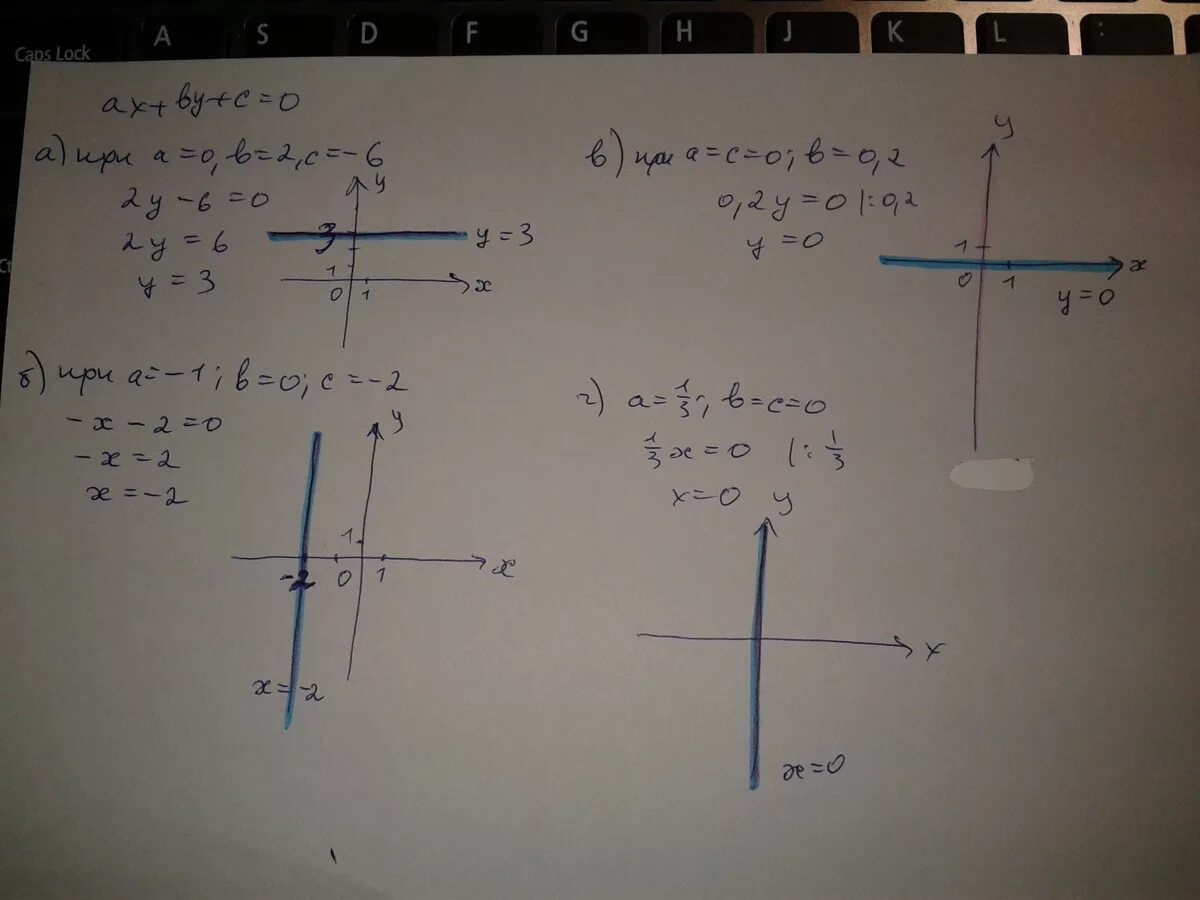 Caps Lock A S D F G H J K L :
ax+by+c=0
а) при a=0, b=2, c=-6
2y-6=0
2y=6
y=3
y
3
y=3
1
0 1 x
б) при a=-1; b=0; c=-2
-x-2=0
-x=2
x=-2
y
1
-2 0 1 x
x=-2
в) при a=c=0; b=0,2
0,2y=0 |:0,2
y=0
y
1
0 1 x
y=0
г) a=1/3; b=c=0
1/3x=0 |:1/3
x=0
y
x
x=0